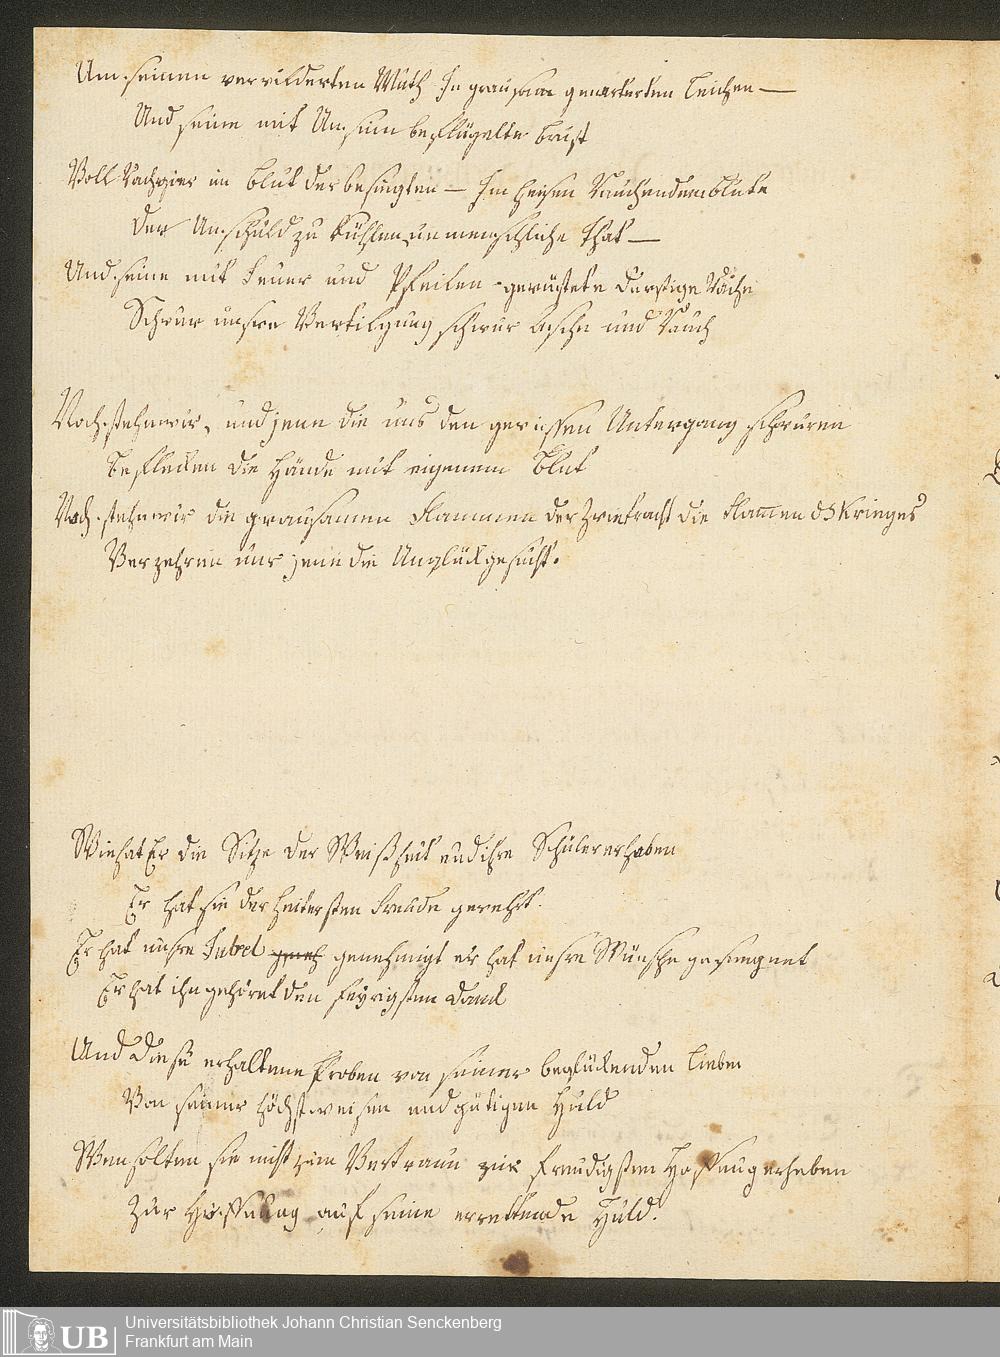 Um seinen verwilderten Muth In grausam gemarterten Leichen —
Und seine mit Unsinn beflügelte Brust
Voll Rachgier im Blut der besiegten — Im heisen Rauchendem blute
Der Unschuld zu kühlen unmenschliche That —
Und seine mit Feuer und Pfeilen gerüstete durstige Rache
Schwur unsre Vertilgung schwur Asche und Rauch
Noch stehn wir, und jene die uns den gewissen Untergang schwuren
beflecken die Hände mit eigenem Blut
Noch stehn wir die grausamen Flammen der Zwietracht die Flamen des Krieges
Verzehren nur jene die Unglük gesucht.
Wie hat Er die Sitze der Weißheit und ihre Schüler erhaben
Er hat sie der heitersten Freude gewehrt.
Er hat unsre Jubel genehmigt er hat unsre Wünsche geseegnet
Er hat ihn gehöret den feyrigsten Dank
Und diese erhaltene Proben von seiner beglükenden Liebe
Von seiner höchst weisen und gütigen Huld
Wem solten sie nicht zum Vertraun zur freudigsten Hoffnug erheben
Zur Hoffnung auf seine errettende Huld.
Universitätsbibliothek Johann Christian Senckenberg
Frankfurt am Main
UB